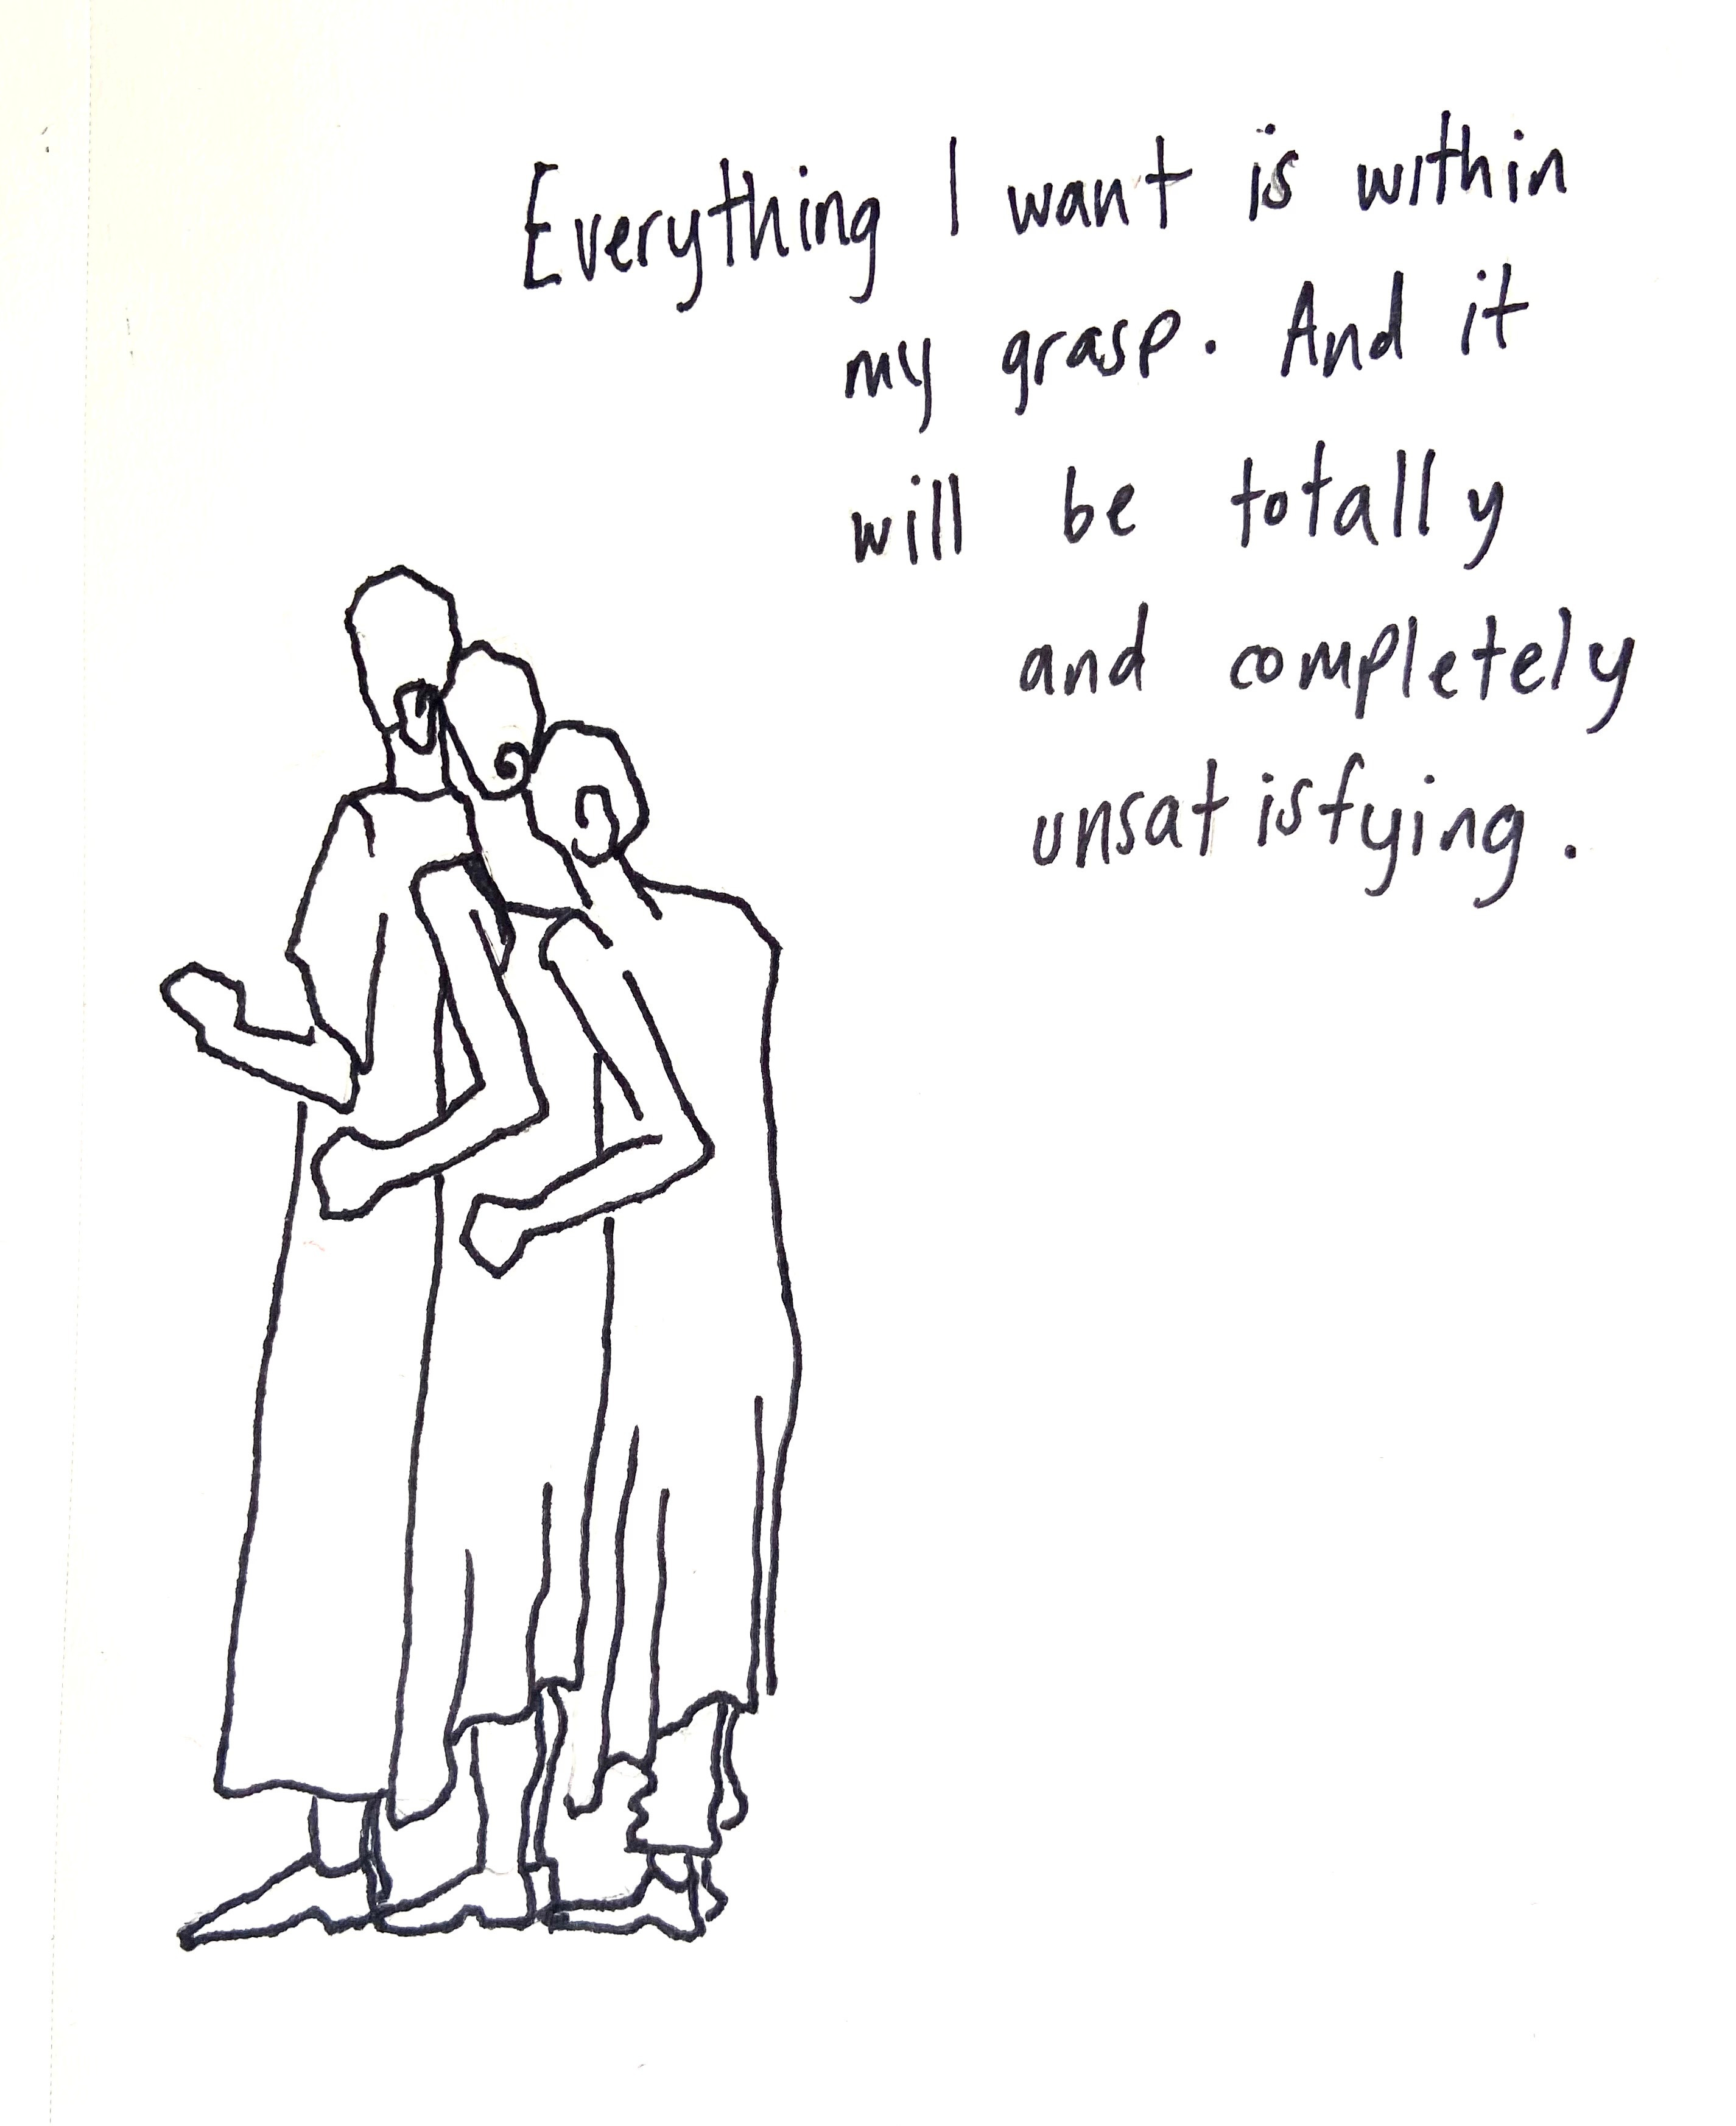 Everything I want is within
my grasp. And it
will be totally
and completely
unsatisfying.